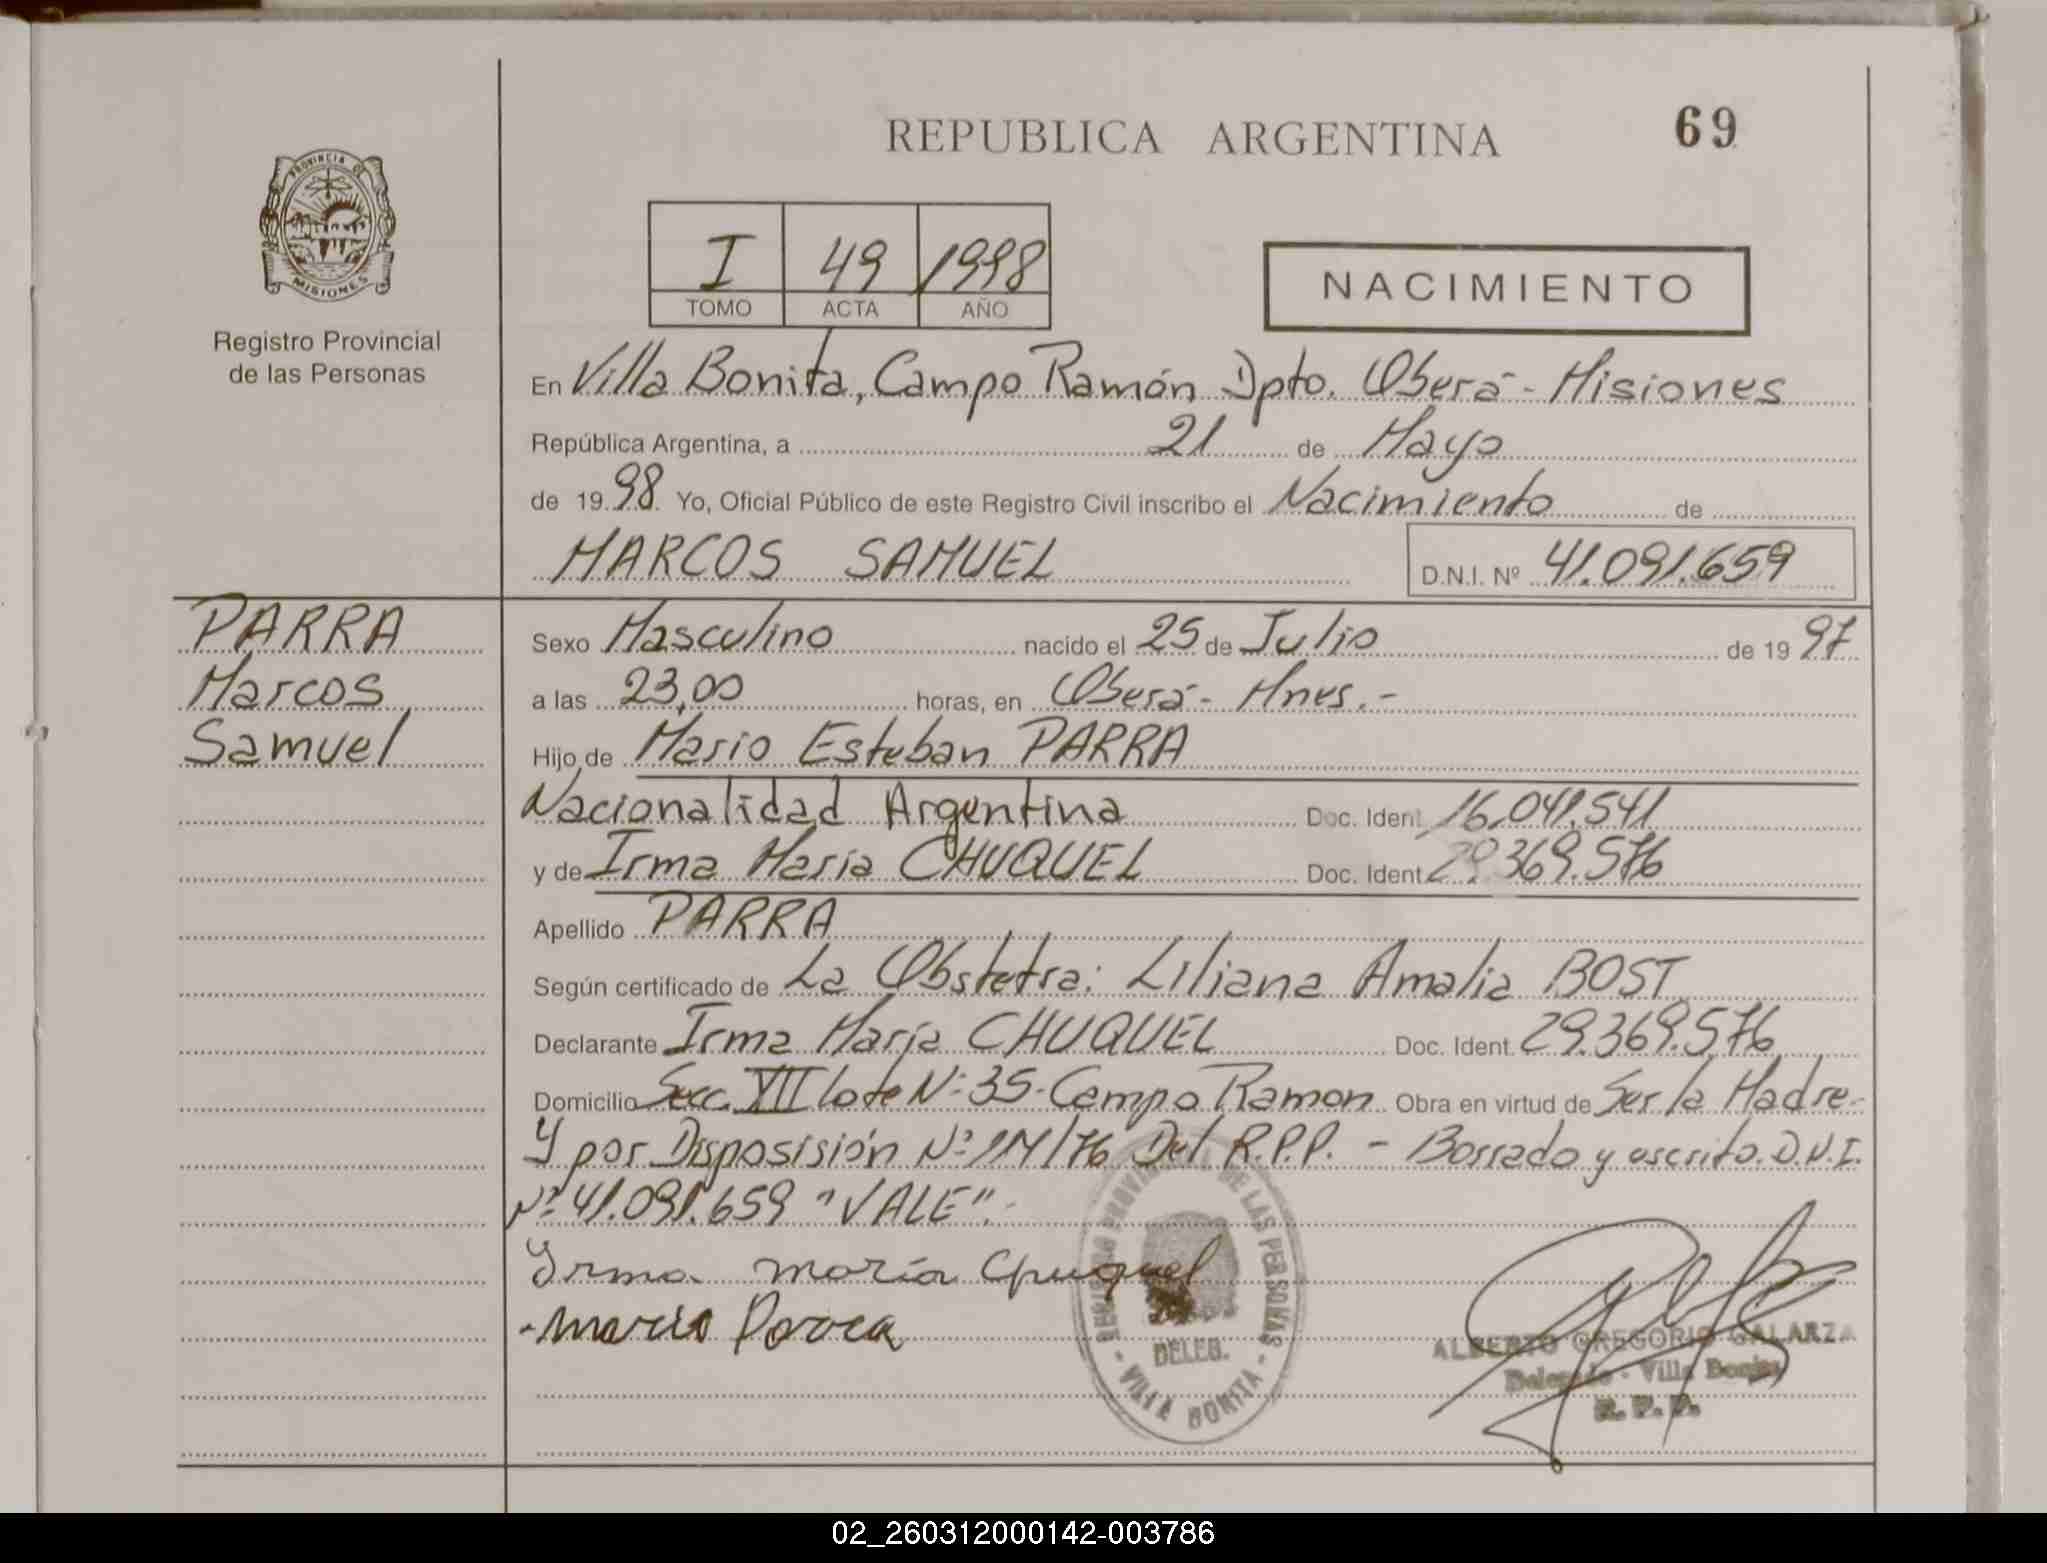 REPUBLICA ARGENTINA
69
PROVINCIA DE
MISIONES
Registro Provincial
de las Personas
I 49 1998
TOMO ACTA AÑO
NACIMIENTO
En Villa Bonita, Campo Ramón Dpto. Oberá - Misiones
República Argentina, a 21 de Mayo
de 19 98 Yo, Oficial Público de este Registro Civil inscribo el Nacimiento de
MARCOS SAMUEL D.N.I. Nº 41.091.659
PARRA
Marcos
Samuel
Sexo Masculino nacido el 25 de Julio de 19 97
a las 23,00 horas, en Oberá - Mnes.-
Hijo de Mario Esteban PARRA
Nacionalidad Argentina Doc. Ident 16.041.541
y de Irma María CHUQUEL Doc. Ident 29.369.576
Apellido PARRA
Según certificado de La Obstetra: Liliana Amalia BOST
Declarante Irma María CHUQUEL Doc. Ident. 29.369.576
Domicilio Secc. VII lote Nº 35 - Campo Ramon Obra en virtud de Ser la Madre-
Y por Disposisión Nº 1M/76 Del R.P.P. - Borrado y escrito. D.N.I.
Nº 41.091.659 "VALE".-
Irma maría Chuquel
mario Parra
REGISTRO PROVINCIAL DE LAS PERSONAS
DELEG.
- VILLA BONITA -
ALBERTO GREGORIO GALARZA
Delegado - Villa Bonita
R. P. P.
02_260312000142-003786